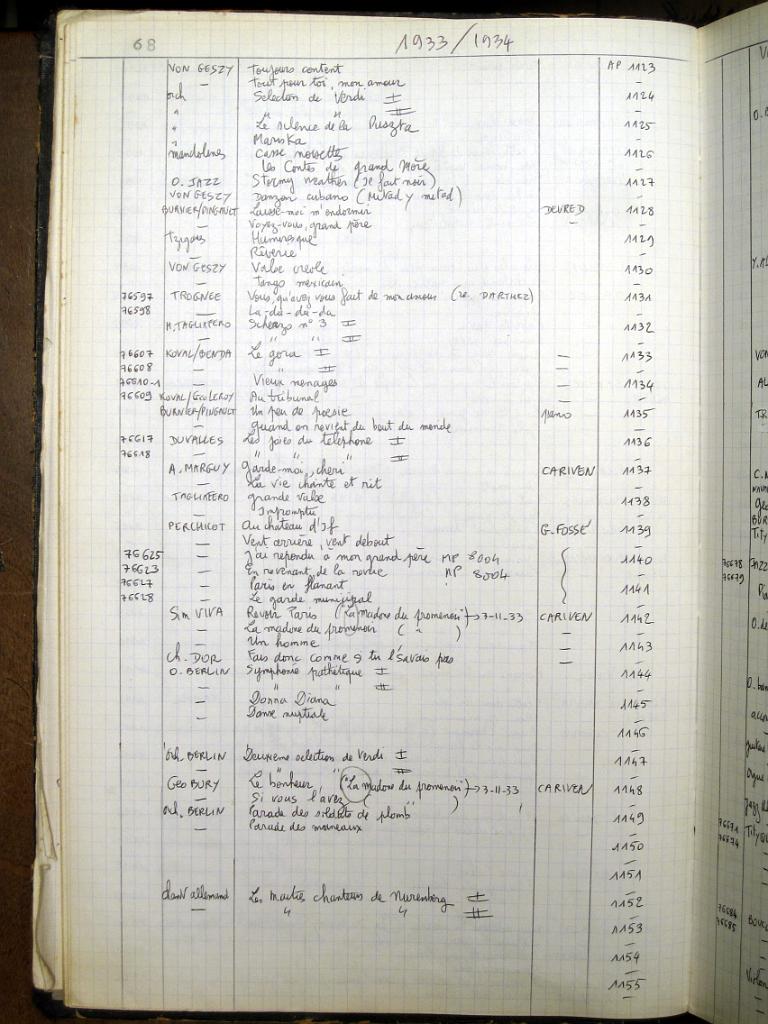 68 1933/1934
VON GESZY Toujours content AP 1123
— Tout pour toi, mon amour —
orch Selection de Verdi I 1124
" " " II —
" Le silence de la Puszta 1125
" Mariska —
mandolines Casse noisette 1126
Les Contes de grand Mère —
O. JAZZ Stormy weather (Il fait noir) 1127
VON GESZY Danzon cubano (Mitad y mitad) —
BURNIER/PINGAULT Laisse-moi m'endormir DEVRED 1128
— Voyez-vous, grand père — —
Tzigans Humoresque 1129
— Rêverie —
VON GESZY Valse creole 1130
— Tango mexicain —
76597 TROGNEE Vous, qu'avez vous fait de mon amour (re. DARTHEZ) 1131
76598 — La-da-da-da —
M. TAGLIAFERO Scherzo n° 3 I 1132
— " " II —
76607 KOVAL/BENDA Le gora I — 1133
76608 — " II — —
76610-1 — Vieux menages — 1134
76609 KOVAL/GEO LEROY Au tribunal — —
BURNIER/PINGAULT Un peu de poesie piano 1135
— Quand on revient du bout du monde —
76617 DUVALLES Les joies du telephone I 1136
76618 — " " " II —
A. MARGUY Garde-moi, cheri CARIVEN 1137
— La vie chante et rit —
TAGLIAFERO grande valse 1138
— Impromptu —
PERCHICOT Au chateau d'If G. FOSSÉ 1139
— Vent arrière, vent debout —
76625 — J'ai repondu à mon grand père MP 8004 1140
76623 — En revenant de la revue MP 8004 —
76627 — Paris en flanant 1141
76628 — Le garde municipal —
Sim VIVA Revoir Paris ("La madone du promenoir") → 3-11-33 CARIVEN 1142
— La madone du promenoir ( " ) — —
— Un homme — 1143
Ch. DOR Fais donc comme si tu l'savais pas — —
O. BERLIN Symphonie pathétique I 1144
— " " II —
— Donna Diana 1145
— Danse nuptiale —
1146
—
Orch. BERLIN Deuxieme selection de Verdi I 1147
— II —
Geo BURY Le bonheur ("La madone du promenoir") → 3-11-33 CARIVEN 1148
— Si vous l'avez ( " ) —
Orch. BERLIN Parade des soldats de plomb 1149
— Parade des moineaux —
1150
—
1151
—
chant allemand Les maitres chanteurs de Nuremberg I 1152
— " " II —
1153
—
1154
—
1155
—